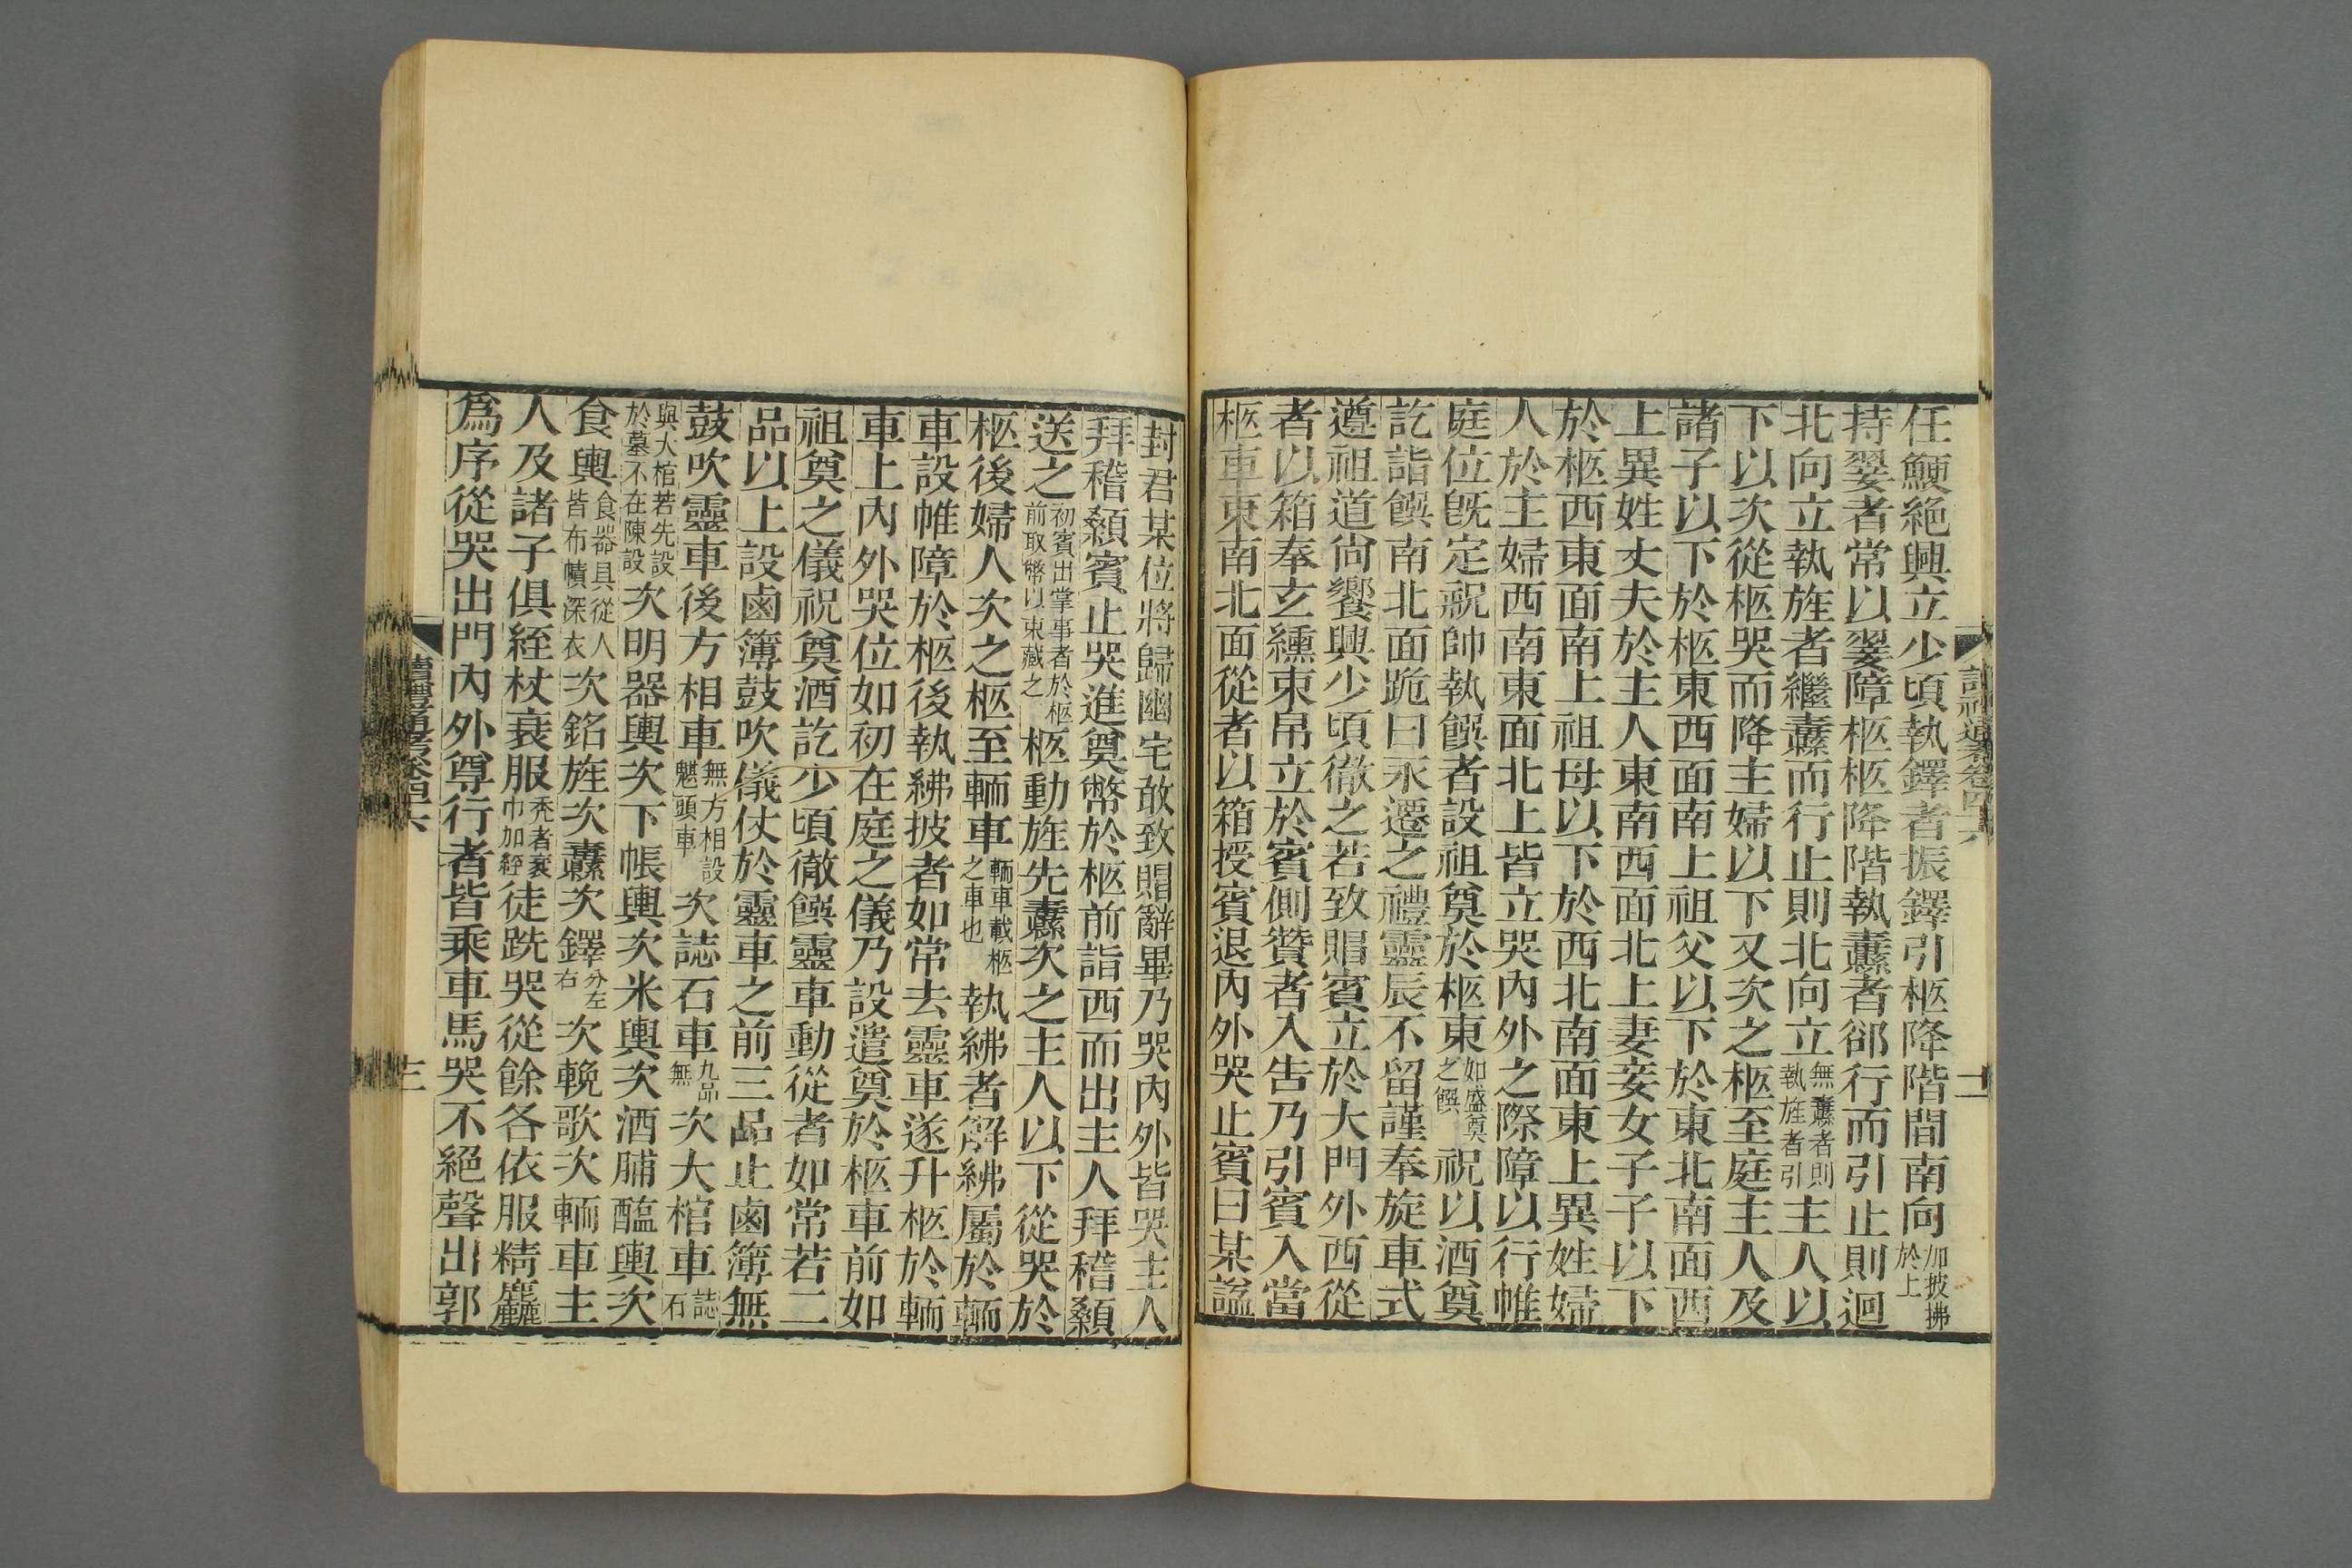 任鯁絶興立少頃執鐸者振鐸引柩降階間南向加披拂於上
持翣者常以翣障柩柩降階執纛者郤行而引止則迴
北向立執旌者繼纛而行止則北向立無纛者則執旌者引主人以
下以次從柩哭而降主婦以下又次之柩至庭主人及
諸子以下於柩東西面南上祖父以下於東北南面西
上異姓丈夫於主人東南西面北上妻妾女子子以下
於柩西東面南上祖母以下於西北南面東上異姓婦
人於主婦西南東面北上皆立哭內外之際障以行帷
庭位旣定祝帥執饌者設祖奠於柩東如盛奠之饌祝以酒奠
訖詣饌南北面跪曰永遷之禮靈辰不留謹奉旋車式
遵祖道尙饗興少頃徹之若致賵賓立於大門外西從
者以箱奉玄纁束帛立於賓側贊者入告乃引賓入當
柩車東南北面從者以箱授賓退內外哭止賓曰某謚
封君某位將歸幽宅敢致賵辭畢乃哭內外皆哭主人
拜稽顙賓止哭進奠幣於柩前詣西而出主人拜稽顙
送之初賓出掌事者於柩前取幣以東藏之柩動旌先纛次之主人以下從哭於
柩後婦人次之柩至輀車輀車載柩之車也執紼者解紼屬於輀
車設帷障於柩後執紼披者如常去靈車遂升柩於輀
車上內外哭位如初在庭之儀乃設遣奠於柩車前如
祖奠之儀祝奠酒訖少頃徹饌靈車動從者如常若二
品以上設鹵簿鼓吹儀仗於靈車之前三品止鹵簿無
鼓吹靈車後方相車無方相設魌頭車次誌石車九品無次大棺車誌石
與大棺若先設於墓不在陳設次明器輿次下帳輿次米輿次酒脯醢輿次
食輿食器具從人皆布幘深衣次銘旌次纛次鐸分左右次輓歌次輀車主
人及諸子俱絰杖衰服禿者裹巾加絰徒跣哭從餘各依服精麤
爲序從哭出門內外尊行者皆乘車馬哭不絕聲出郭
讀禮通考卷四十六
十二
讀禮通考卷四十六